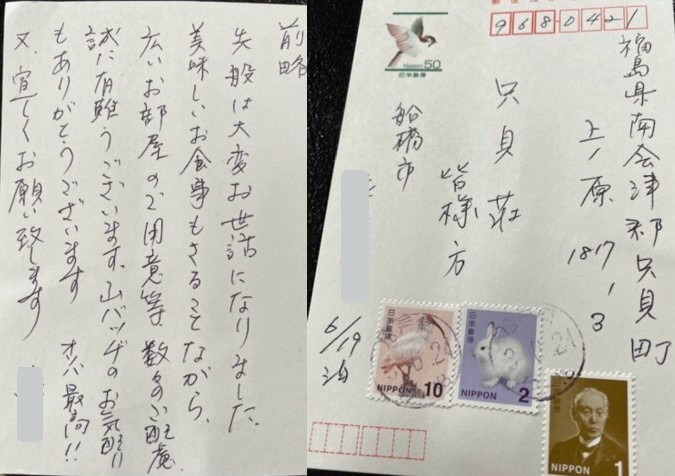 前略
先般は大変お世話になりました。
美味しいお食事もさることながら、
広いお部屋のご用意等 数々のご配慮
誠に有難うございます。山バッヂのお気配り
もありがとうございます オバ最高!!
又、宜しくお願い致します
9680421
福島県南会津郡只見町
上ノ原 1817-3
只見荘
皆様方
船橋市
6/19泊
Nippon 50
日本郵便
日本郵便
NIPPON 10
日本郵便
NIPPON 2
NIPPON 1